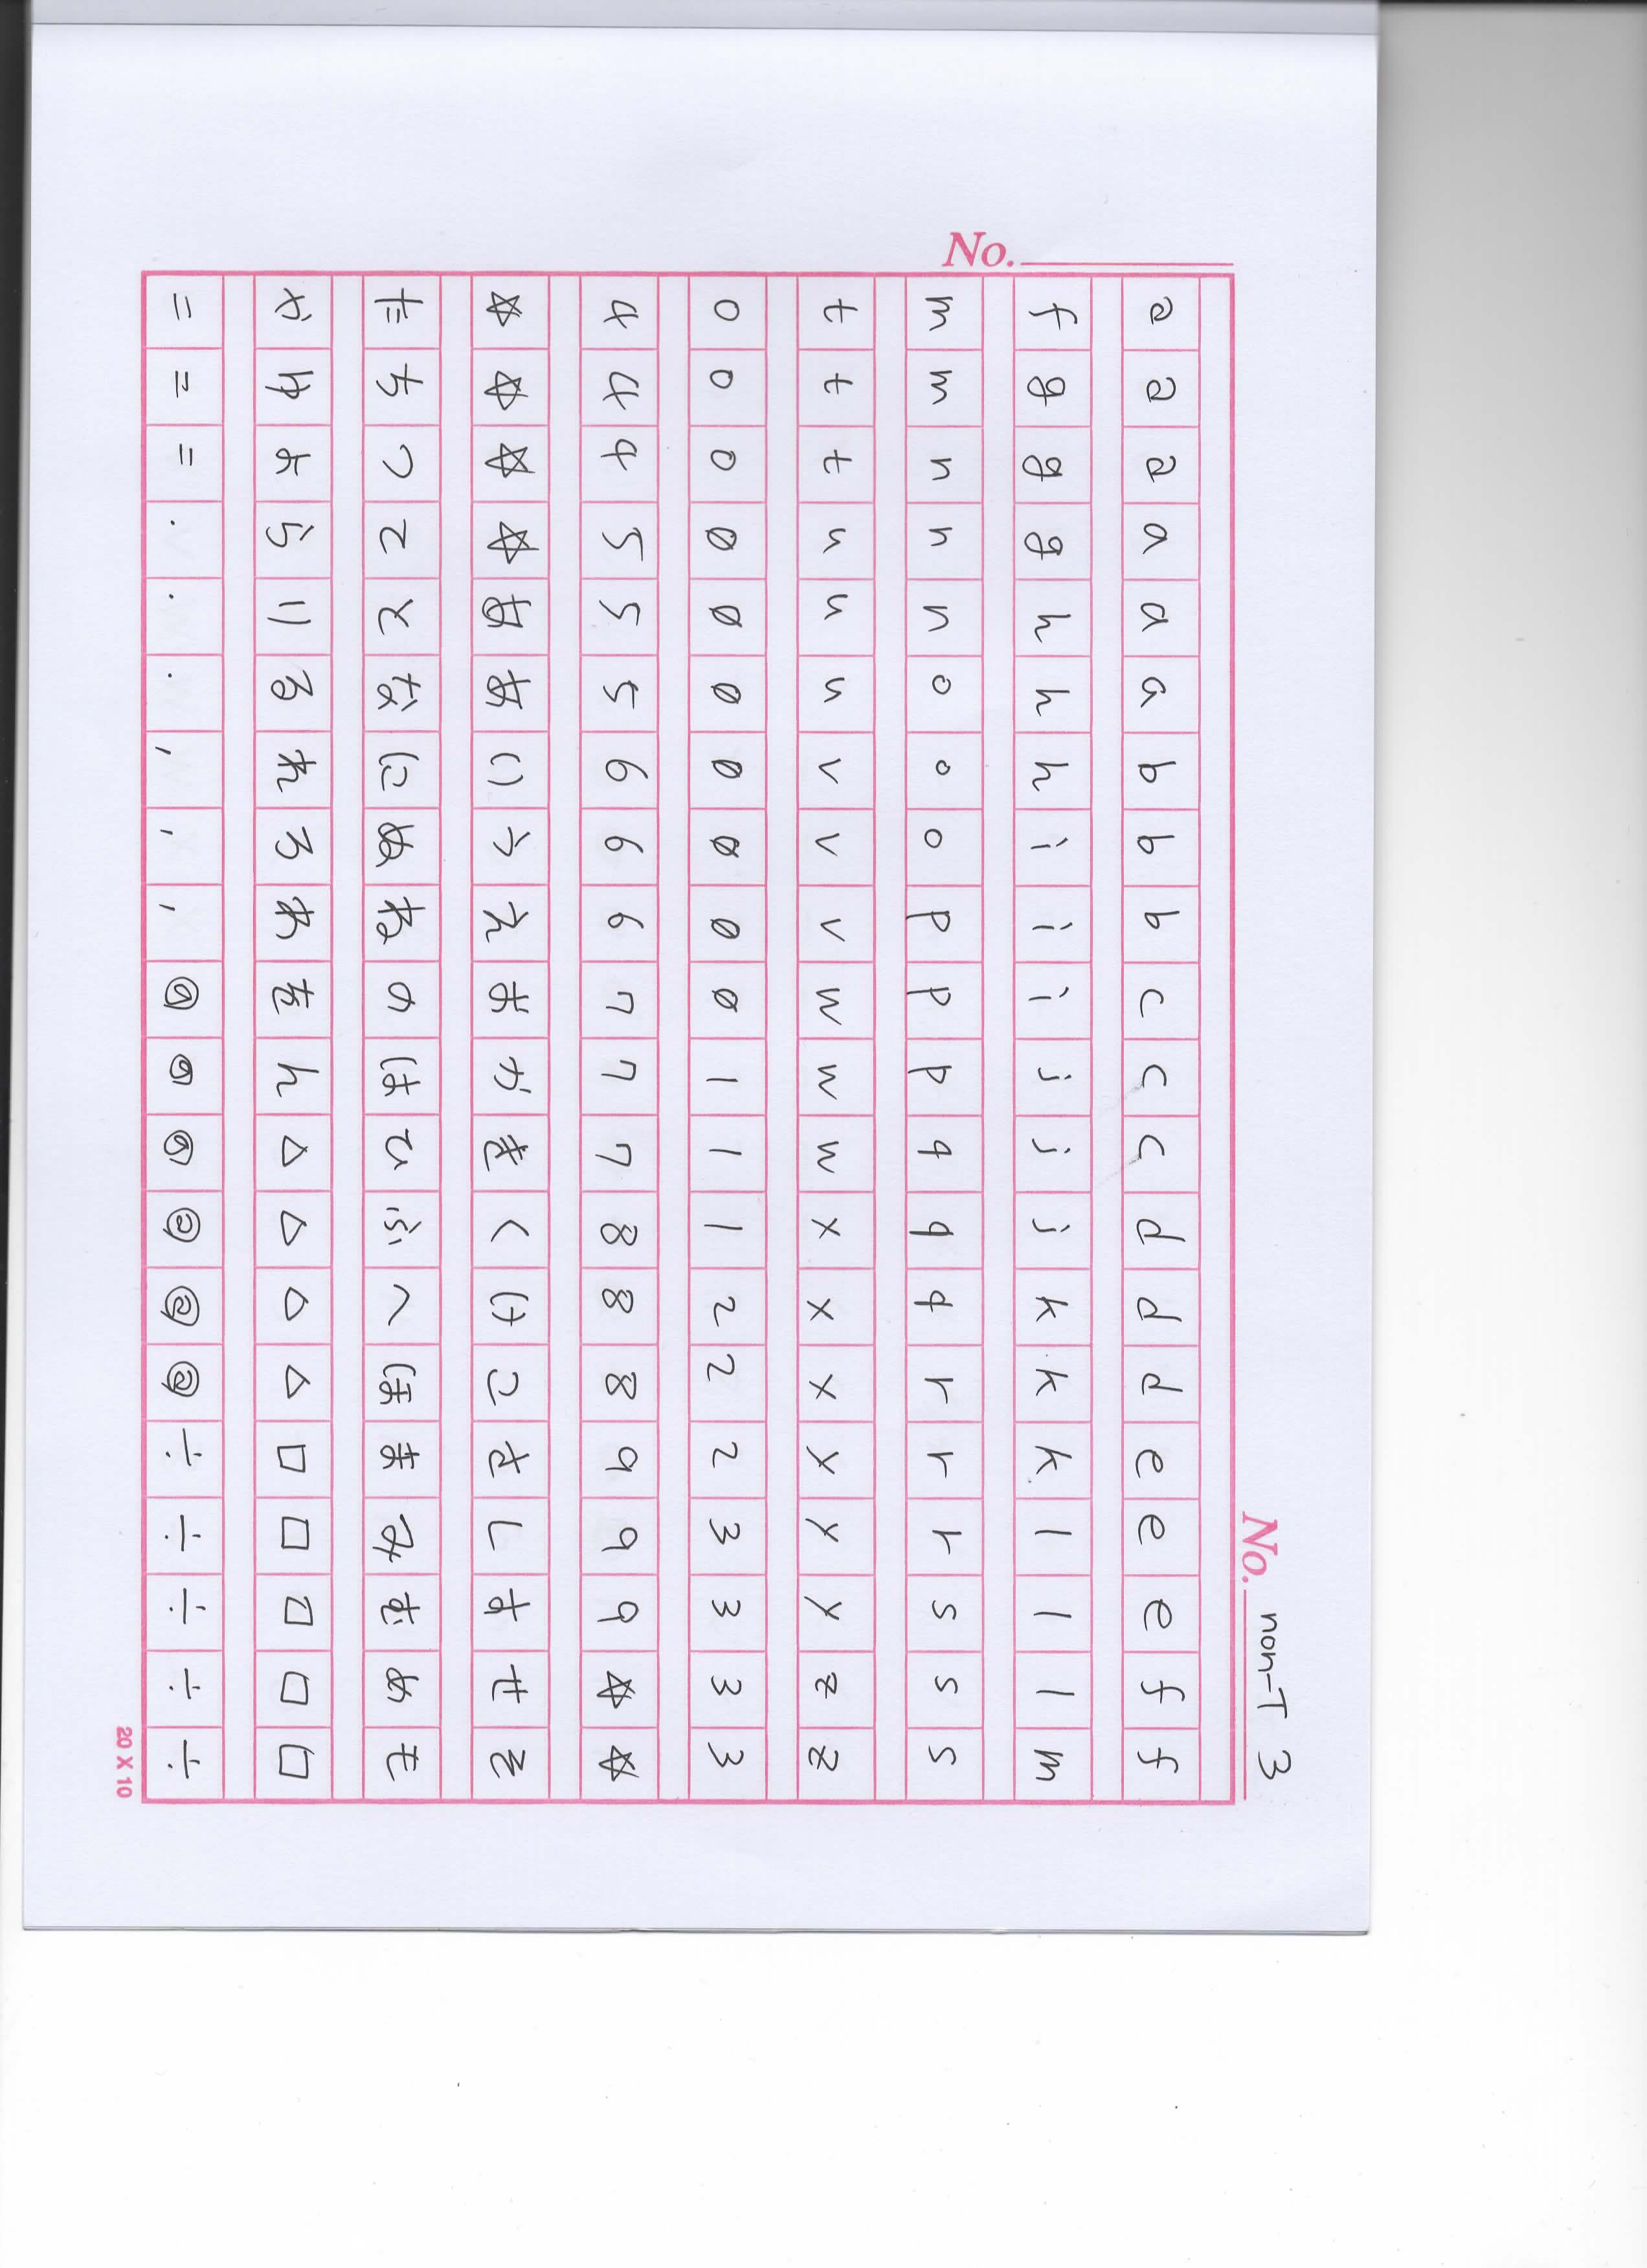 No. non-T 3
a a a a a a b b b c c c d d d e e e f f
f g g g h h h i i i j j j k k k l l l m
m m n n n o o o p p p q q q r r r s s s
t t t u u u v v v w w w x x x y y y z z
0 0 0 0̸ 0̸ 0̸ 0̸ 0̸ 0̸ 0̸ 1 1 1 2 2 2 3 3 3 3
4 4 4 5 5 5 6 6 6 7 7 7 8 8 8 9 9 9 ☆ ☆
☆ ☆ ☆ ☆ あ あ い う え お か き く け こ さ し す せ そ
た ち つ て と な に ぬ ね の は ひ ふ へ ほ ま み む め も
や ゆ よ ら り る れ ろ わ を ん △ △ △ △ □ □ □ □ □
= = = . . . , , , @ @ @ @ @ @ ÷ ÷ ÷ ÷ ÷
No.
20 X 10